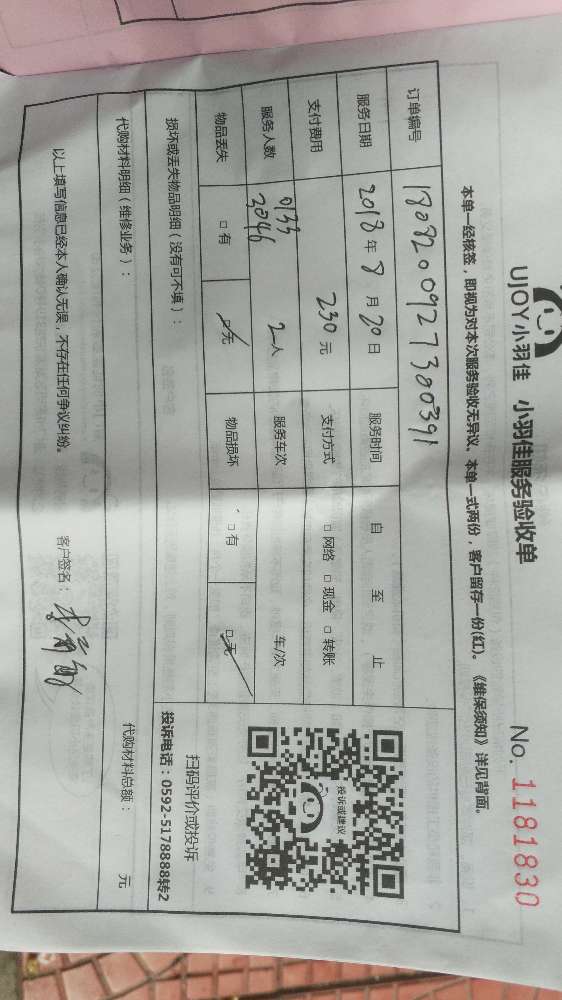 UJOY小羽佳 小羽佳服务验收单 No. 1181830
本单一经核签，即视为对本次服务验收无异议、本单一式两份，客户留存一份(红)。《维保须知》详见背面。
订单编号 1808200927300391
服务日期 2018 年 8 月 20 日 服务时间 自 至 止
支付费用 230 元 支付方式 □ 网络 □ 现金 □ 转账
服务人数 0133 3046 2 人 服务车次 车/次
物品丢失 □ 有 □ 无 物品损坏 □ 有 □ 无
损坏或丢失物品明细（没有可不填）：
代购材料明细（维修业务）： 代购材料总额： 元
投诉或建议
扫码评价或投诉
投诉电话：0592-5178888转2
以上填写信息已经本人确认无误，不存在任何争议纠纷。 客户签名：